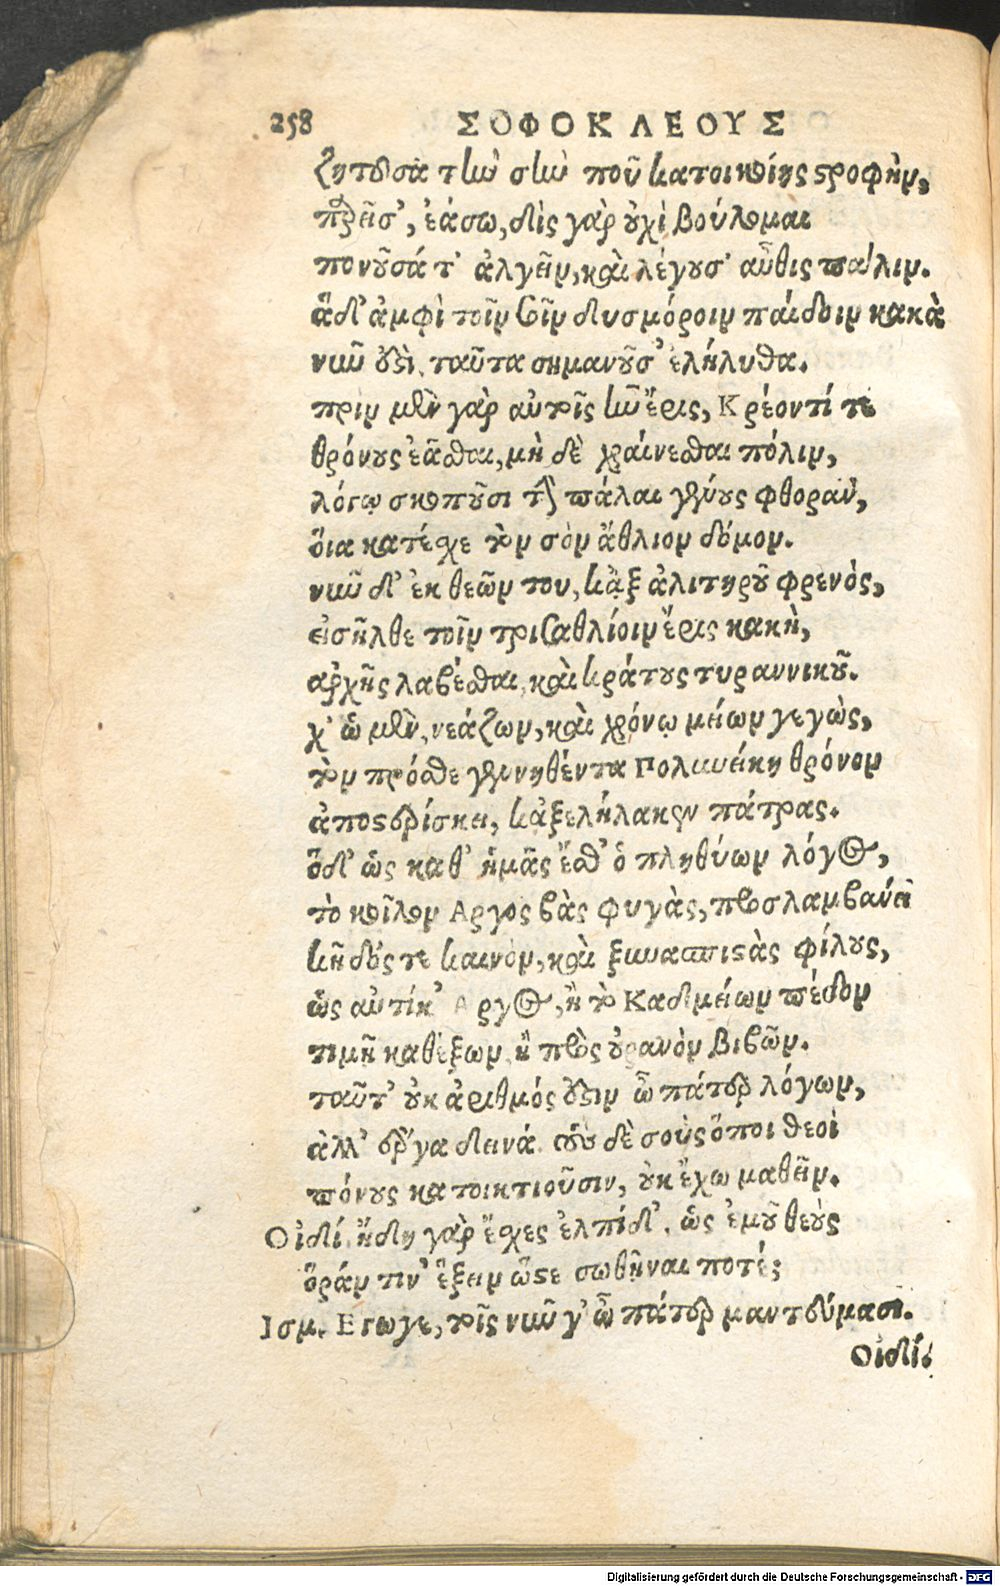 258 ΣΟΦΟΚΛΕΟΥΣ
ζητοῦσα τὴν σὴν ποῦ κατοικοίης στροφὴν,
παρεῖσ', ἐάσω, δὶς γὰρ οὐχὶ βούλομαι
πονοῦσά τ' ἀλγεῖν, καὶ λέγουσ' αὖθις πάλιν.
ἃ δ' ἀμφὶ τοῖν σοῖν δυσμόροιν παίδοιν κακὰ
νῦν ἐστὶ, ταῦτα σημανοῦσ' ἐλήλυθα.
πρὶν μὲν γὰρ αὐτοῖς ἦν ἔρις, Κρέοντί τε
θρόνους ἐᾶσθαι, μὴ δὲ χραίνεσθαι πόλιν,
λόγῳ σκοποῦσι τὴν πάλαι γένους φθορὰν,
ὅια κατέσχε τὸν σὸν ἄθλιον δόμον.
νῦν δ' ἐκ θεῶν του, κἀξ ἀλιτηροῦ φρενὸς,
εἰσῆλθε τοῖν τρισαθλίοιν ἔρις κακὴ,
ἀρχῆς λαβέσθαι, καὶ κράτους τυραννικοῦ.
χ' ὡ μὲν, νεάζων, καὶ χρόνῳ μείων γεγὼς,
τὸν πρόσθε γεννηθέντα Πολυνείκη θρόνον
ἀποστερίσκει, κἀξελήλακεν πάτρας.
ὅδ' ὡς καθ' ἡμᾶς ἔσθ' ὁ πληθύων λόγος,
τὸ κοῖλον Αργος βὰς φυγὰς, προσλαμβάνει
κῆδός τε καινὸν, καὶ ξυνασπιστὰς φίλους,
ὡς αὐτίκ' Αργος, ἢ τὸ Καδμείων πέδον
τιμῇ καθέξων, ἢ πρὸς οὐρανὸν βιβῶν.
ταῦτ' οὐκ ἀριθμός ἐστιν ὦ πάτερ λόγων,
ἀλλ' ἔργα δεινά. τοὺς δὲ σοὺς ὅποι θεοὶ
πόνους κατοικτιοῦσιν, οὐκ ἔχω μαθεῖν.
Οἰδί. ἤδη γὰρ ἔσχες ἐλπίδ', ὡς ἐμοῦ θεοὺς
ὅράν τιν' ἕξειν ὥστε σωθῆναι ποτέ;
Ισμ. Εγωγε, τοῖς νῦν γ' ὦ πάτερ μαντεύμασι.
Οἰδί.
Digitalisierung gefördert durch die Deutsche Forschungsgemeinschaft - DFG